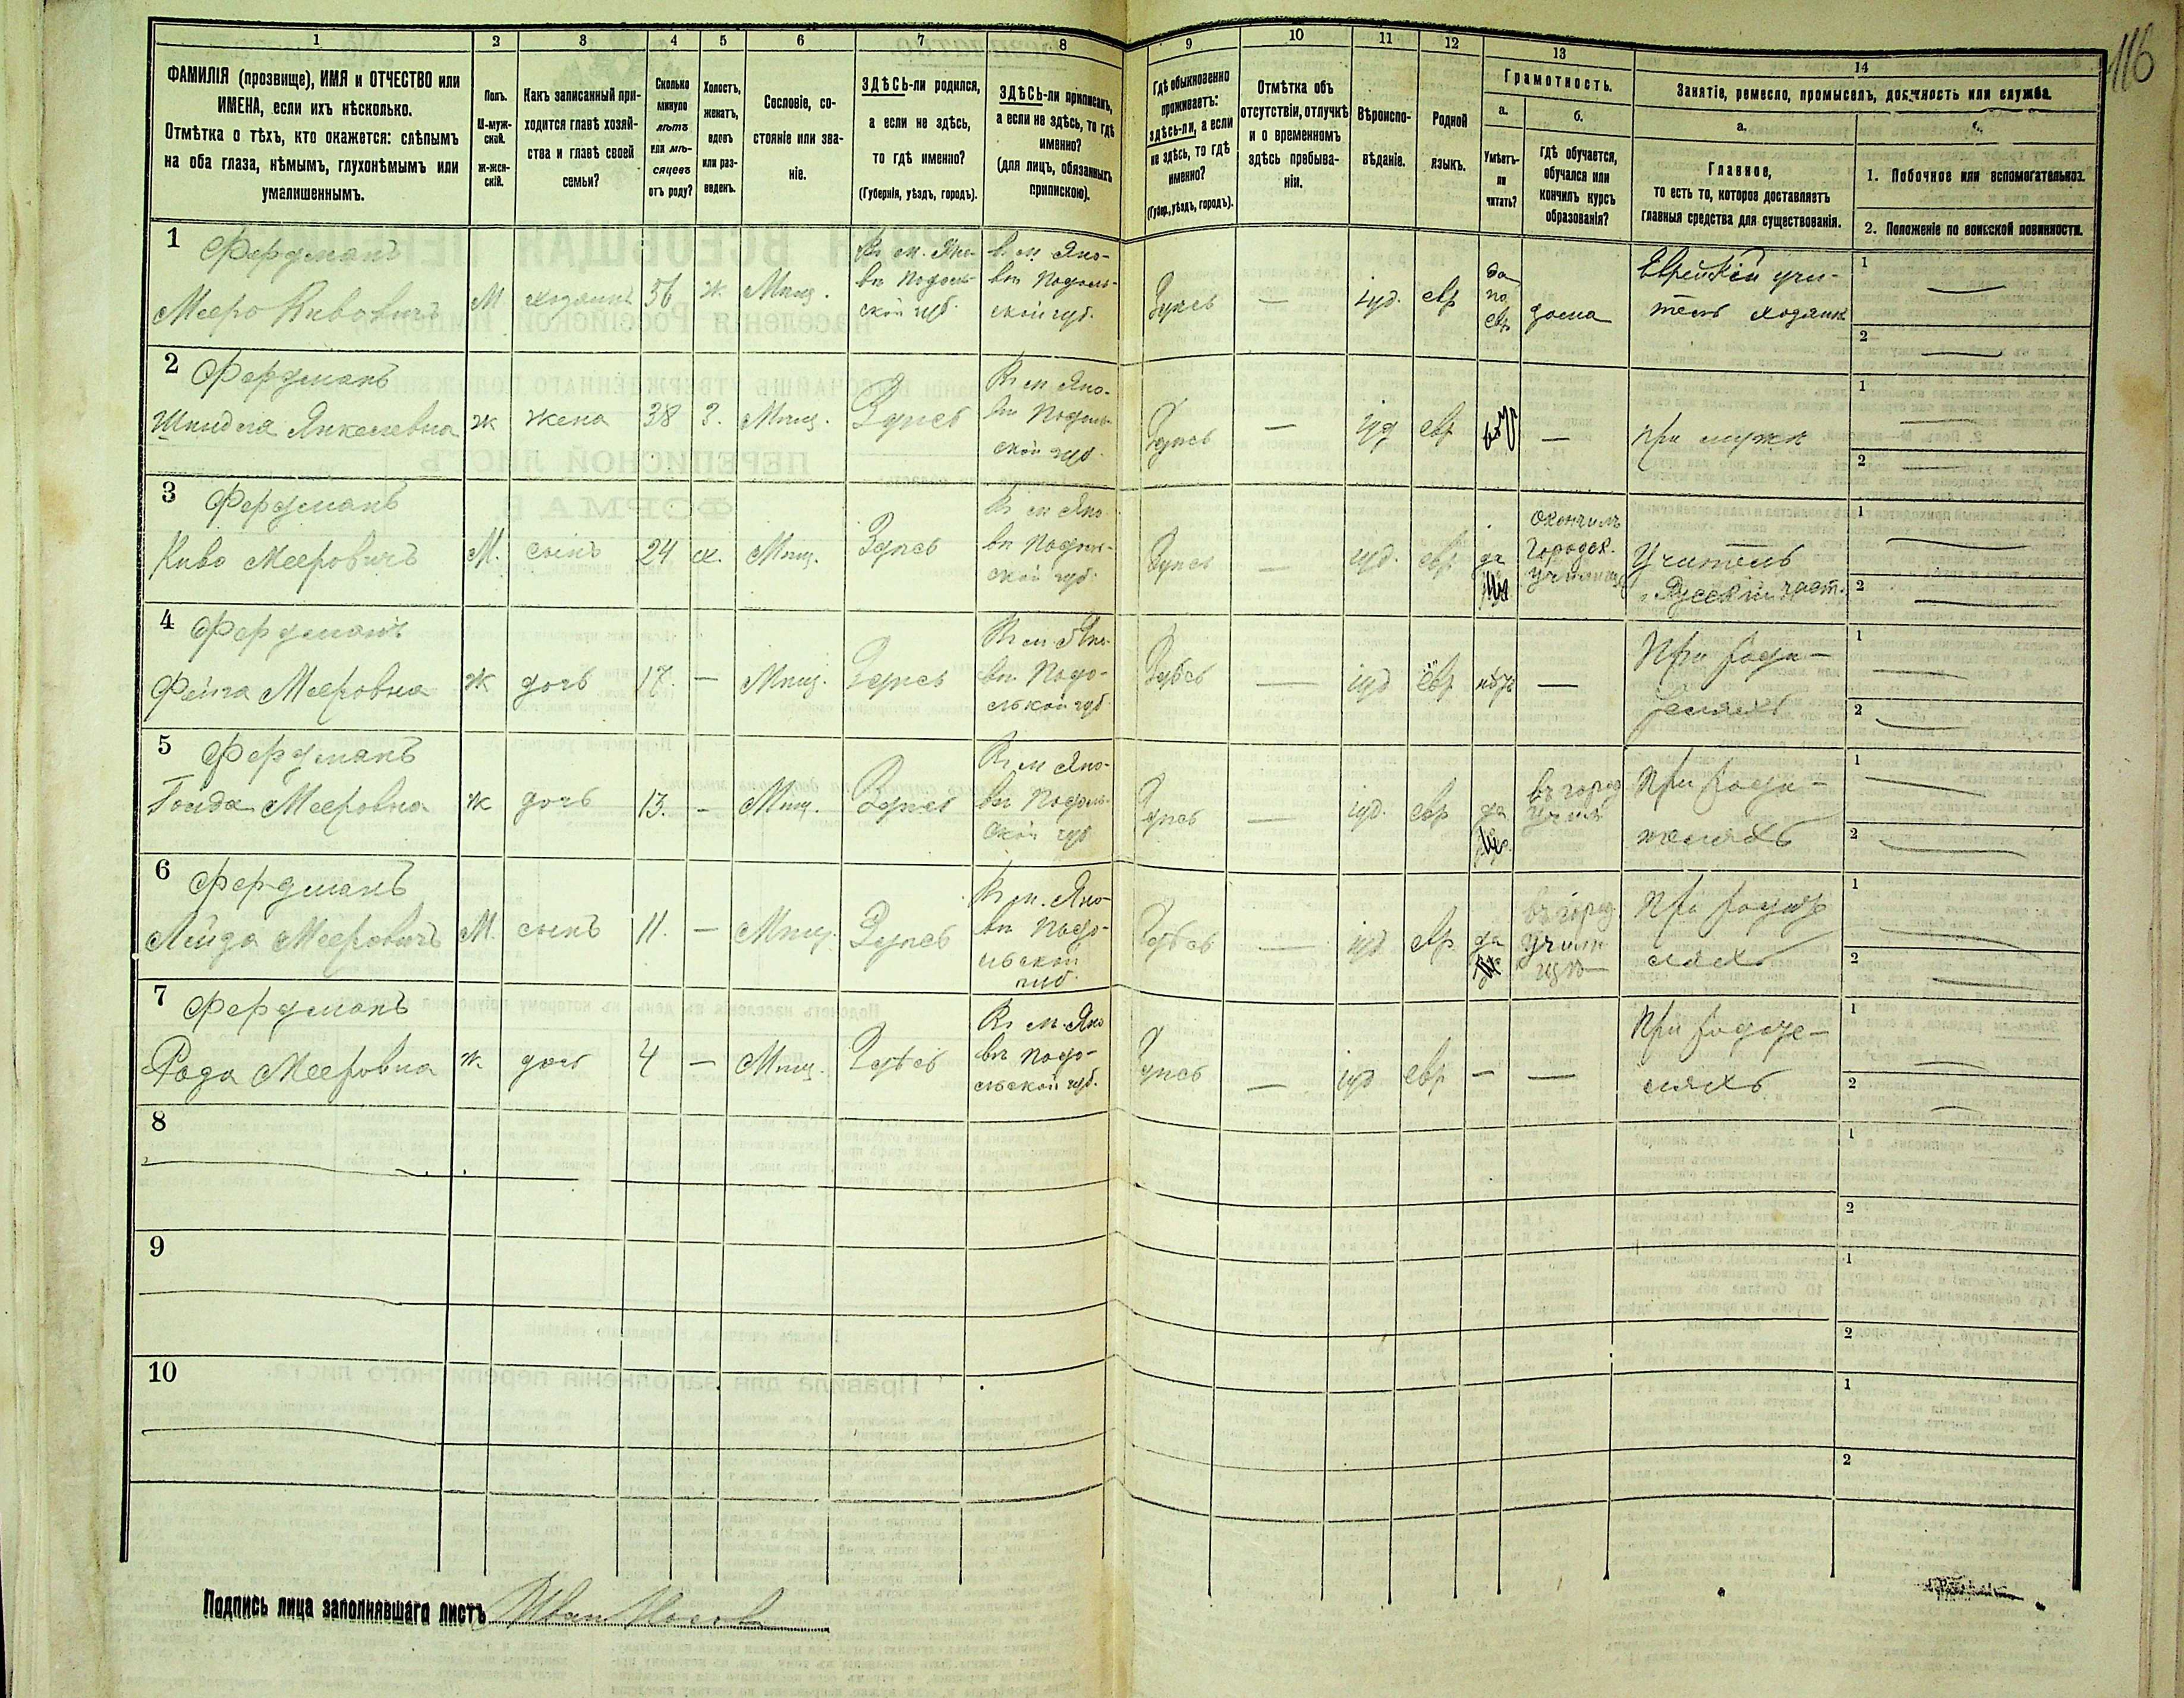 116
1
2
3
4
5
6
7
8
9
10
11
12
13
14
ФАМИЛІЯ (прозвище), ИМЯ и ОТЧЕСТВО или
ИМЕНА, если ихъ нѣсколько.
Отмѣтка о тѣхъ, кто окажется: слѣпымъ
на оба глаза, нѣмымъ, глухонѣмымъ или
умалишеннымъ.
Полъ.
М-муж-
ской.
ж-жен-
скій.
Какъ записанный при-
ходится главѣ хозяй-
ства и главѣ своей
семьи?
Сколько
минуло
лѣтъ
или мѣ-
сяцевъ
отъ роду?
Холостъ,
женатъ,
вдовъ
или раз-
веденъ.
Сословіе, со-
стояніе или зва-
ніе.
ЗДѢСЬ-ли родился,
а если не здѣсь,
то гдѣ именно?
(Губернія, уѣздъ, городъ).
ЗДѢСЬ-ли приписанъ,
а если не здѣсь, то гдѣ
именно?
(для лицъ, обязанныхъ
припискою).
Гдѣ обыкновенно
проживаетъ:
здѣсь-ли, а если
не здѣсь, то гдѣ
именно?
(Губер., уѣздъ, городъ).
Отмѣтка объ
отсутствіи, отлучкѣ
и о временномъ
здѣсь пребыва-
ніи.
Вѣроиспо-
вѣданіе.
Родной
языкъ.
Грамотность.
а.
Умѣетъ-
ли
читать?
б.
гдѣ обучается,
обучался или
кончилъ курсъ
образованія?
Занятіе, ремесло, промыселъ, должность или служба.
а.
Главное,
то есть то, которое доставляетъ
главныя средства для существованія.
1. Побочное или вспомогательное.
2. Положеніе по воинской повинности.
1
Фердманъ
Мееро Кивовичъ
М
хозяинъ
56
ж.
Мѣщ.
Въ м. Яно-
вѣ Подоль-
ской губ.
В. м. Яно-
вѣ Подоль-
ской губ.
Здѣсь
—
іуд.
евр
да
по
евр
дома
Еврейскій учи-
тель хозяинъ
1 —
2 —
2
Фердманъ
Шейндля Янкелевна
ж
жена
38
З.
Мѣщ.
Здѣсь
Въ м Яно-
вѣ Подоль-
ской губ.
Здѣсь
—
іуд
евр
—
при мужѣ
1 —
2 —
3
Фердманъ
Киво Мееровичъ
М.
сынъ
24
х.
Мѣщ.
Здѣсь
Въ м Яно-
вѣ Подоль-
ской губ.
Здѣсь
—
іуд.
евр
да
Окончилъ
Городск.
училище
Учитель
Русскій част.
1 —
2 —
4
Фердманъ
Фейга Мееровна
ж
дочь
17.
—
Мѣщ.
Здѣсь
Въ м Яно-
вѣ Подо-
льской губ
Здѣсь
—
іуд
евр
нѣтъ
—
При роди-
теляхъ
1 —
2 —
5
Фердманъ
Гольда Мееровна
ж
дочь
13.
—
Мѣщ.
Здѣсь
Въ м Яно-
вѣ Подоль-
ской губ
Здѣсь
—
іуд.
евр
да
въ город
учил
При роди-
теляхъ
1 —
2 —
6
Фердманъ
Мееровичъ
М.
сынъ
11.
—
Мѣщ.
Здѣсь
Въ м. Яно-
вѣ Подо-
льской
губ.
Здѣсь
—
іуд
евр
да
въ город
учили
щѣ
При родите
ляхъ
1 —
2 —
7
Фердманъ
Рода Мееровна
ж.
дочь
4
—
Мѣщ.
Здѣсь
Въ м. Яно
вѣ Подо-
льской губ.
Здѣсь
—
іуд
евр
—
—
При родите-
ляхъ
1 —
2 —
8
1
2
9
1
2
10
1
2
Подпись лица заполнявшаго листъ Иван